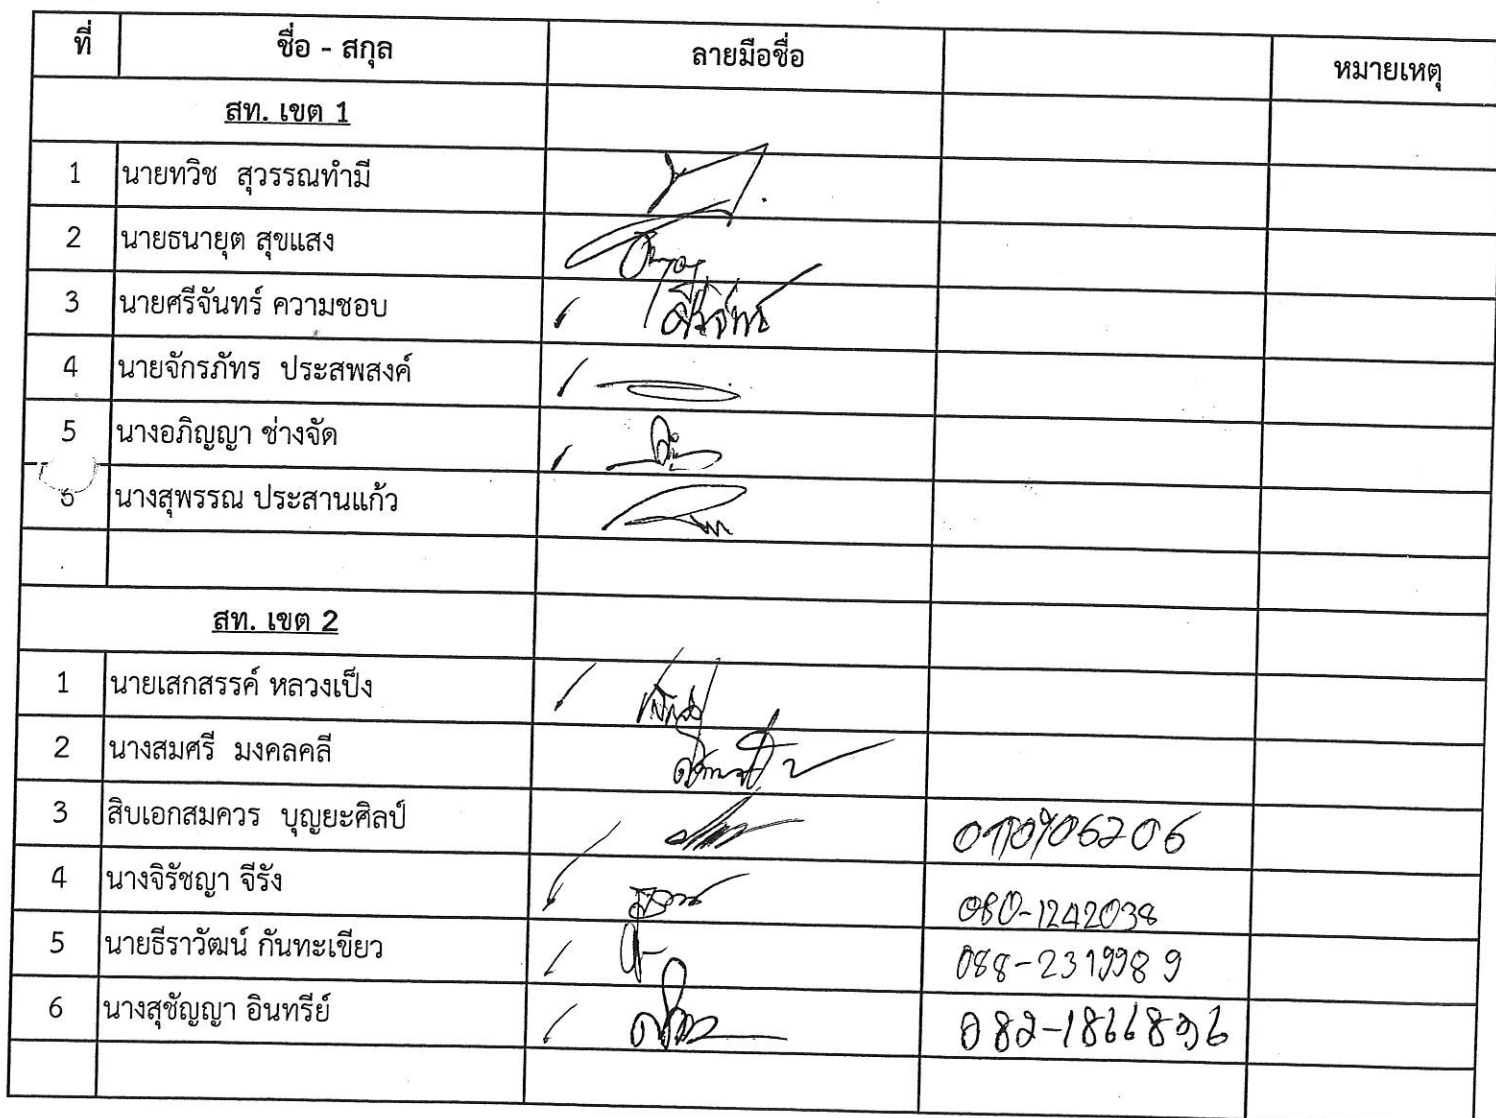 ที่ ชื่อ - สกุล ลายมือชื่อ หมายเหตุ
สท. เขต 1
1 นายทวิช สุวรรณทำมี
2 นายธนายุต สุขแสง
3 นายศรีจันทร์ ความชอบ ศรีจันทร์
4 นายจักรภัทร ประสพสงค์
5 นางอภิญญา ช่างจัด
6 นางสุพรรณ ประสานแก้ว
สท. เขต 2
1 นายเสกสรรค์ หลวงเป็ง
2 นางสมศรี มงคลคลี
3 สิบเอกสมควร บุญยะศิลป์
4 นางจิรัชญา จีรัง 080-1242038
5 นายธีราวัฒน์ กันทะเขียว 088-2319989
6 นางสุชัญญา อินทรีย์